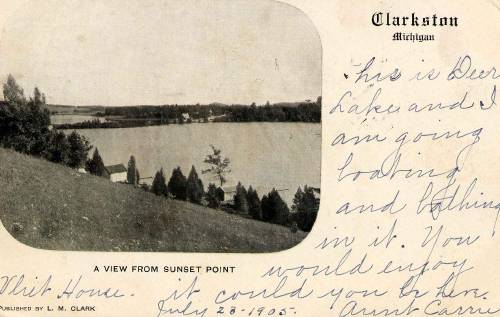 Clarkston
Michigan
This is Deer
Lake and I
am going
boating
and bathing
in it. You
would enjoy
it could you be here.
Aunt Carrie
A VIEW FROM SUNSET POINT
Vliet House.
PUBLISHED BY L. M. CLARK
July 23-1905.